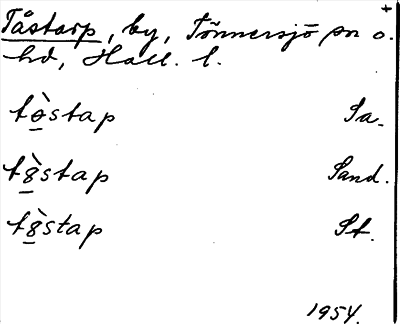 Tåstarp, by, Tönnersjö sn o.
hd, Hall. l.
tò̱stap Sa.
t8̱̀stap Sand.
t8̱̀stap St.
1954.